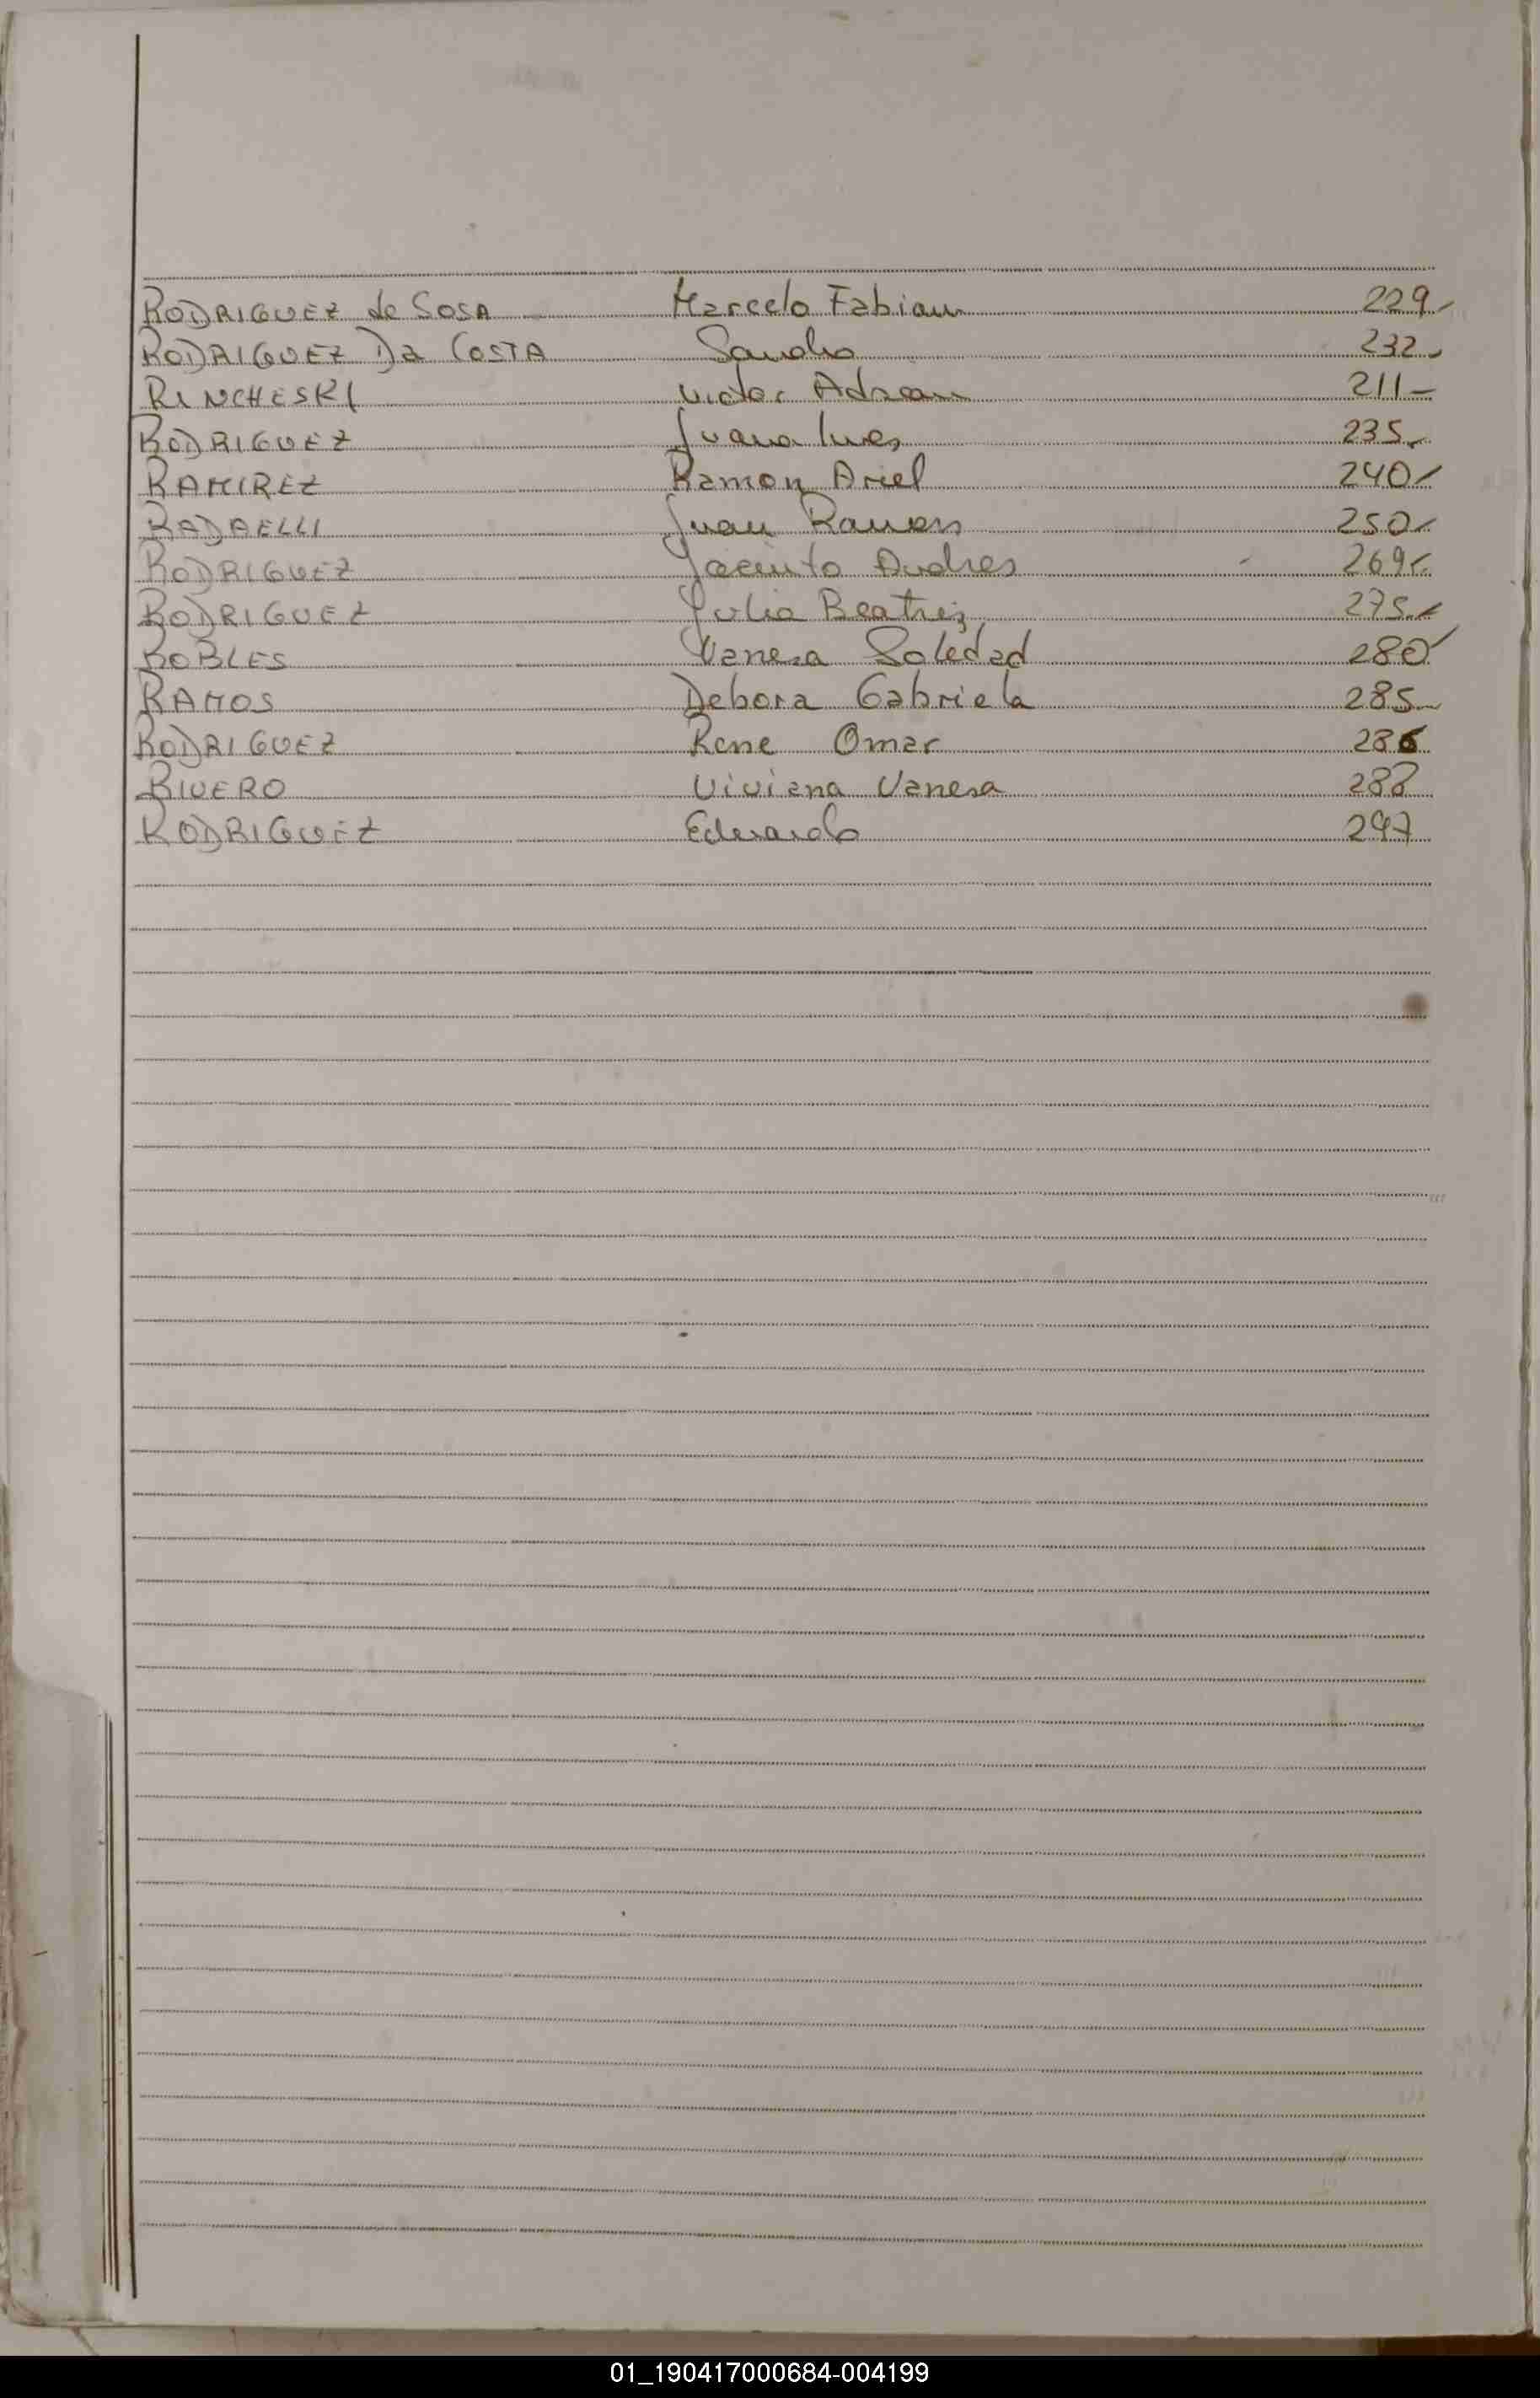 RODRIGUEZ de SOSA Marcelo Fabian 229-
RODRIGUEZ Da COSTA Sandra 232-
RINCHESKI Victor Adrean 211-
RODRIGUEZ Juana Ines 235-
RAMIREZ Ramon Ariel 240-
RADAELLI Juan Ramon 250-
RODRIGUEZ Jacinto Andres 269-
RODRIGUEZ Julia Beatriz 275-
ROBLES Vanesa Soledad 280-
RAMOS Debora Gabriela 285-
RODRIGUEZ Rene Omar 286
RIVERO Viviana Vanesa 288
RODRIGUEZ Eduardo 297
01_190417000684-004199